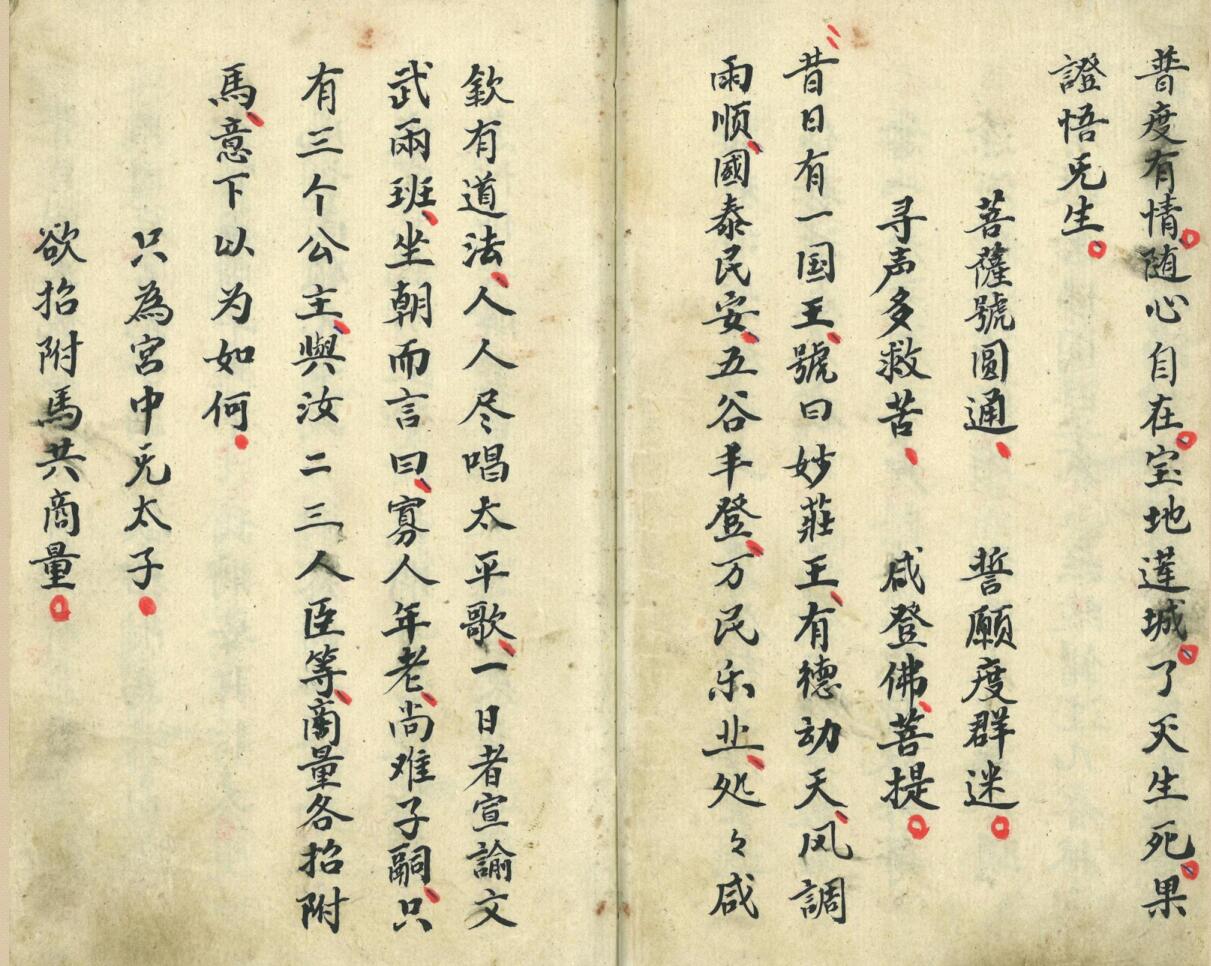 普度有情随心自在宝地莲城了灭生死果
證悟无生
菩薩號圓通 誓願度群迷
寻声多救苦 咸登佛菩提
昔日有一国王號曰妙莊王有德动天风調
雨顺國泰民安五谷丰登万民乐业処々咸
欽有道法人人尽唱太平歌一日者宣諭文
武兩班坐朝而言曰寡人年老尚难子嗣只
有三个公主與汝二三人臣等商量各招附
馬意下以为如何
只為宮中无太子
欲招附馬共商量